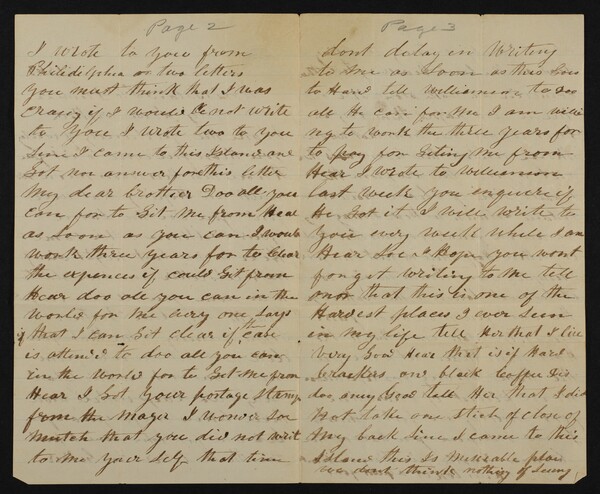 Page 2
I wrote to you from
Philidelphia or two letters
you must think that I was
Crazy if I would not write
to you I wrote two to you
Sine I came to this Island and
Got non answer for this letter
My dear brother Doo all you
can for to Git me from Hear
as soon as you can I would
work three years for to Clear
the expences if could Git from
Hear doo all you can in the
world for me every one Says
that I can Git clear if case
is attend to doo all you can
in the world for to Get Me from
Hear I Got your postage Stamp
from the Mager I wonder Soe
mutch that you did not writ
to Me your Self that time
Page 3
dont delay in Writing
to Me as Soon as this Goes
to Hand tell Williamson to Doo
all He can for Me I am willi
ng to work the three years for
to pay for Giting Me from
Hear I wrote to Williamson
last week you enquere if
He Got it I will write to
you every week while I am
Hear Soe I Hope you wont
forget writing to Me tell
onor that this is one of the
Hardest places I ever Seen
in my life tell Her that I live
very Good Hear that is if Hard
Crackers and black Coffee
doo any Good tell Her that I did
Not take one Stich of Close of
My back Sine I came to this
Island this Is Miserable place
we dont think nothing of Seeing